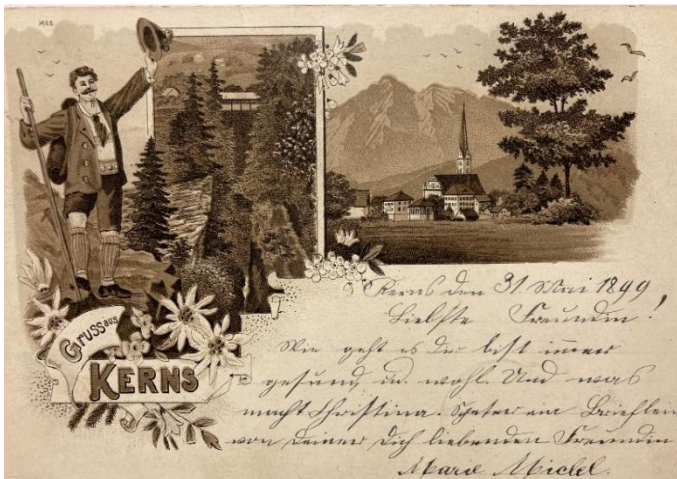 Gruss aus
KERNS
Kerns den 31 Mai 1899
Liebste Freundin!
Wie geht es Dir bist immer
gesund u. wohl. Und was
macht Christina. Später ein Brieflein
von Deiner Dich liebenden Freundin
Marie Michel.